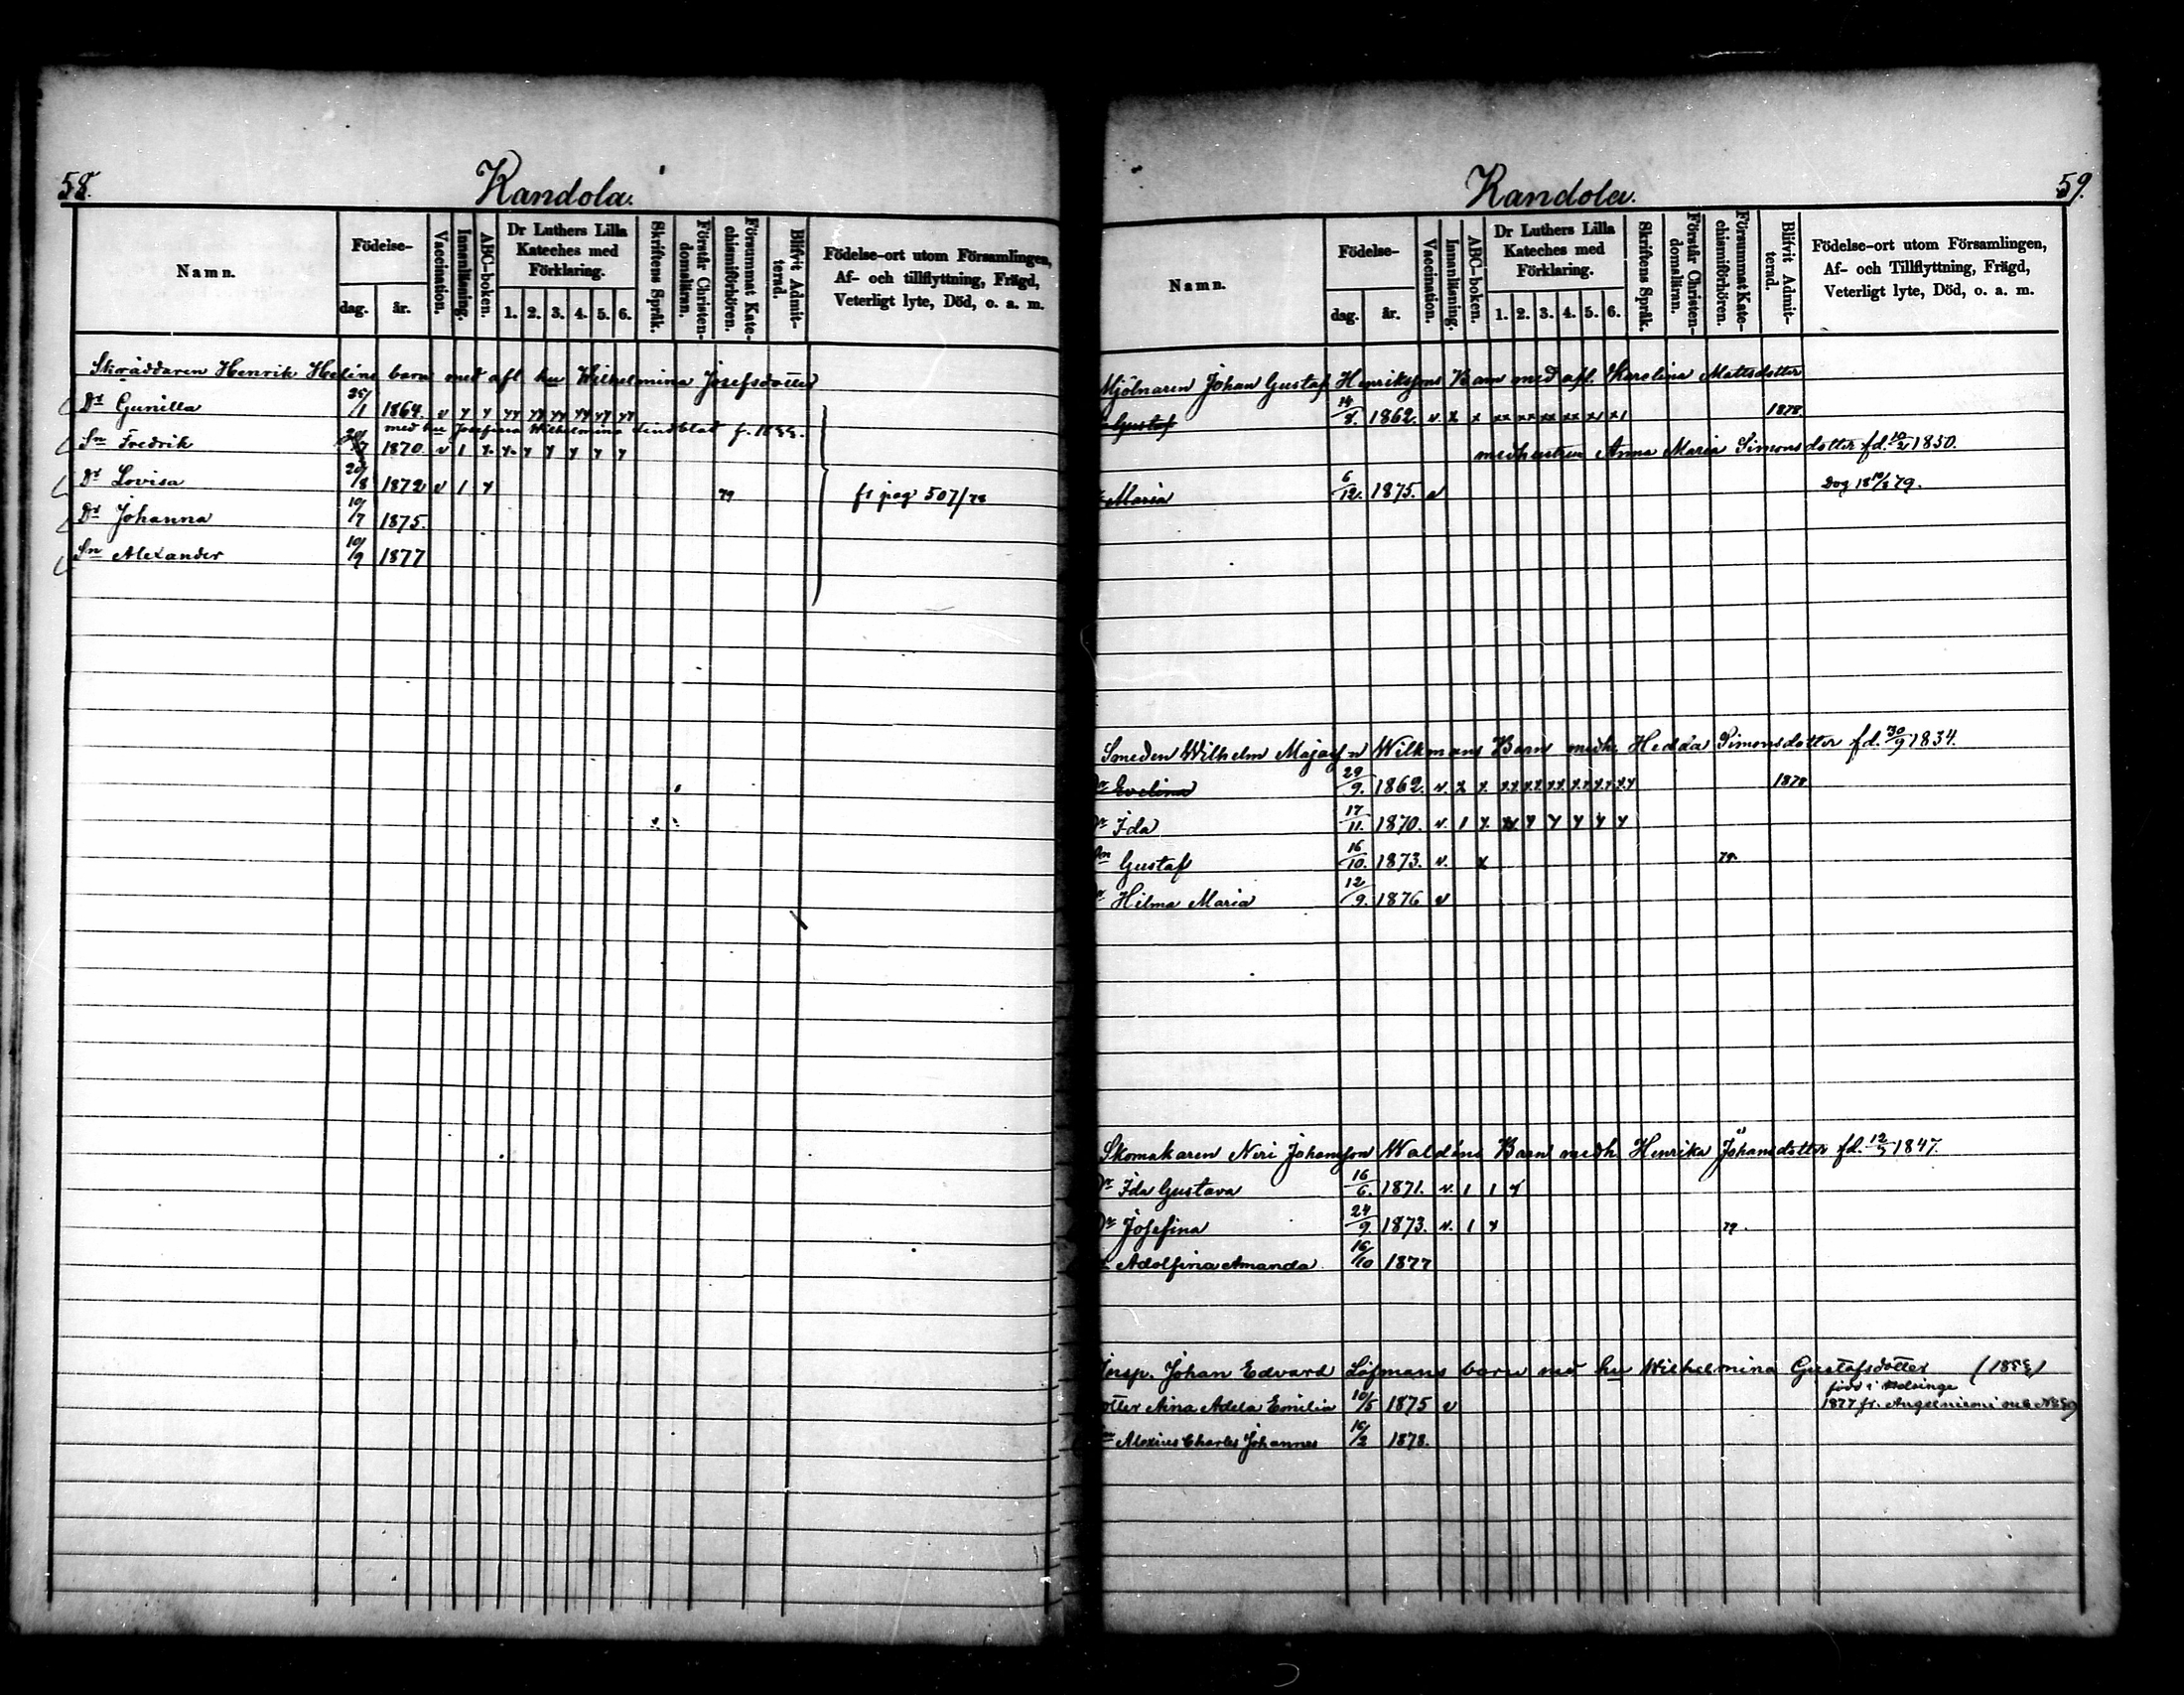 58.
Kandola.
Namn.
Födelse-
dag.
år.
Vaccination.
Innanläsning.
ABC-boken.
Dr Luthers Lilla Kateches med Förklaring.
1. 2. 3. 4. 5. 6.
Skriftens Språk.
Förstår Christendomsläran.
Försummat Katechismiförhören.
Blifvit Admitterad.
Födelse-ort utom Församlingen,
Af- och tillflyttning, Frägd,
Veterligt lyte, Död, o. a. m.
Skräddaren Henrik Helins barn med afl hu Wilhelmina Josefsdotter
Dr Gunilla 25/1 1864. v y y yy yy yy yy yy yy
med hu Josefina Wilhelmina Lindblad f.
Sn Fredrik 7 1870. v 1 y. y. y y y y y
Dr Lovisa 20/8 1872 v 1 y 79 fr pag 507/78
Dr Johanna 10/7 1875.
Sn Alexander 10/9 1877
59.
Kandola.
Namn.
Födelse-
dag.
år.
Vaccination.
Innanläsning.
ABC-boken.
Dr Luthers Lilla Kateches med Förklaring.
1. 2. 3. 4. 5. 6.
Skriftens Språk.
Förstår Christendomsläran.
Försummat Katechismiförhören.
Blifvit Admitterad.
Födelse-ort utom Församlingen,
Af- och Tillflyttning, Frägd,
Veterligt lyte, Död, o. a. m.
Mjölnaren Johan Gustaf Henrikssons Barn med afl. Karolina Mattsdotter
Gustaf 14/8. 1862. v. x x xx xx xx xx x1 x1 1878
med hustrun Anna Maria Simonsdotter fd. 10/2 1850.
Maria 6/12. 1875. v Dog 18 79.
Smeden Wilhelm Wilkmans Barn medh. Hedda Simonsdotter fd. 30/9 1834.
Dr Evelina 29/9. 1862. v. x y. y.y y.y y.y y.y y.y y.y 1878
Dr Ida 17/11. 1870. v. 1 y. y y y y y
Sn Gustaf 16/10. 1873. v. x 79.
Dr Hilma Maria 12/9. 1876 v
Skomakaren Neri Johansson Waldéns Barn medh Henrika Johansdotter fd. 12/5 1847.
Dr Ida Gustava 16/6. 1871. v. 1 1 y
Dr Josefina 24/9 1873. v. 1 y 79.
Adolfina Amanda 16/10 1877
Insp. Johan Edvard Löfmans barn med hu Wilhelmina Gustafsdotter
född i Helsinge
Dotter Aina Adela Emilia 10/5 1875 v 1877 fr. Angelniemi
Sn Alexius Charles Johannes 16/2 1878.